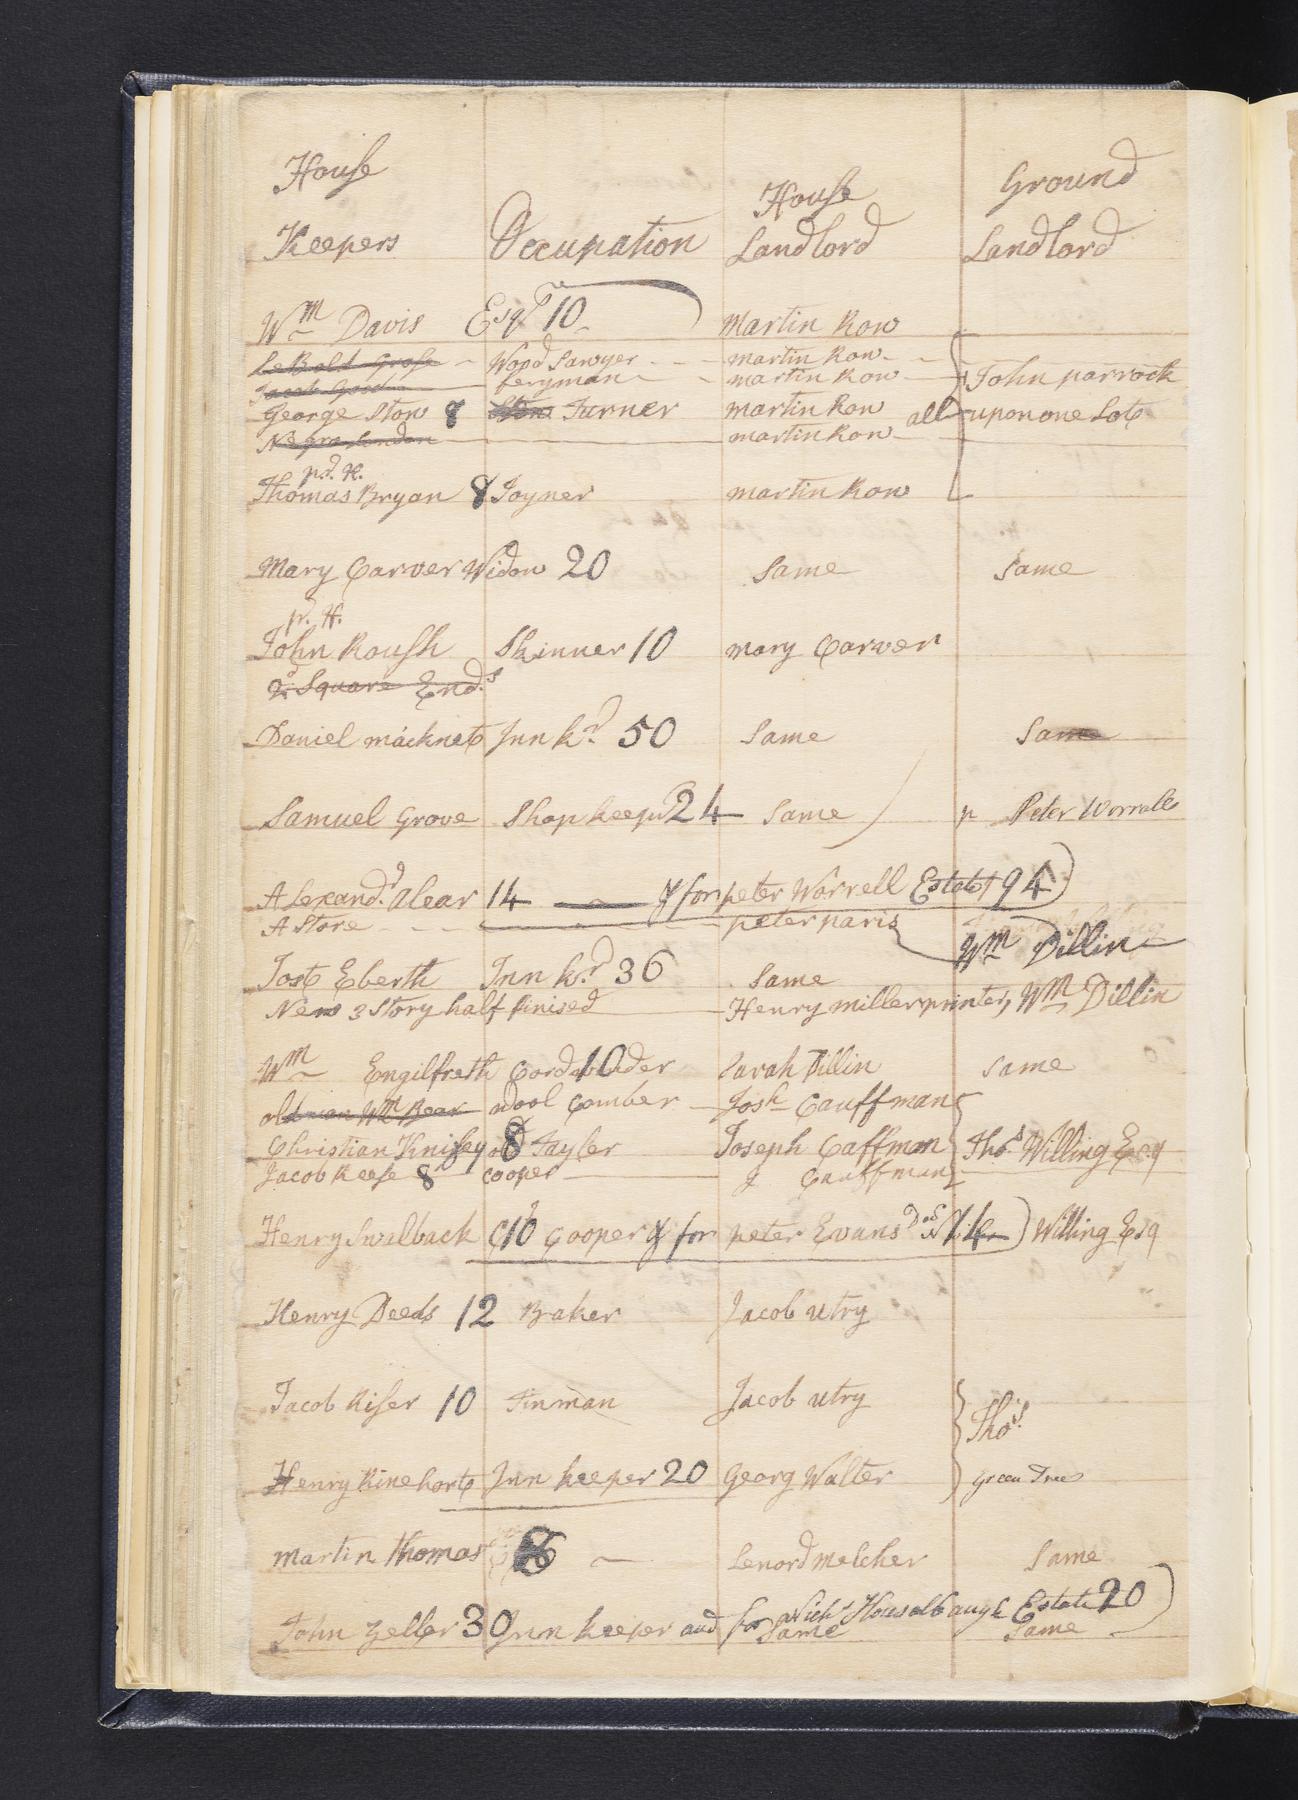 House House Ground
Keepers Occupation Landlord Landlord
Wm Davis Esqr 10 Martin Row
Wood Sawyer martin Row
feryman martin Row John parrock
George Stow 8 Turner martin Row all upon one Lott
martin Row
pd. H.
Thomas Bryan 8 Joyner martin Row
Mary Carver Widow 20 Same Same
pd. H.
John Roush Skinner 10 mary Carver
2d Square Ends
Daniel macknet Inn kr 50 Same Same
Samuel Grove Shop keepr 24 Same p Peter Worrall
Alexandr alear 14 & for peter Worrell Estate 94
A Store peter paris
Wm Dillin
Jost Eberth Inn kr 36 Same
New 3 Story half finised Henry miller printer, Wm Dillin
Wm Engilfreth Cordwinder 10 Sarah Dillin Same
old man Wm Bear wool Comber Josh Cauffman
Christian Knisly 8 Tayler Joseph Caffman Thos Willing Esq
Jacob Keese 8 cooper J Cauffman
Henry Swilback 10 Cooper & for peter Evans Willing Esq
Henry Deeds 12 Baker Jacob utry
Jacob Kiser 10 Tinman Jacob utry
Thos
Henry Rinehart Inn keeper 20 Georg Walter green Tree
martin thomas Lenord melcher Same
John Zeller 30 Inn keeper and for Nichs Estate 20
Same Same